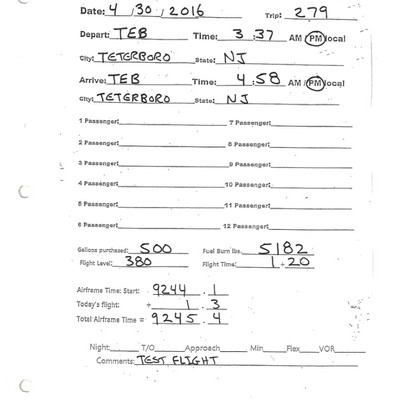 Date: 4 / 30 / 2016 Trip: 279
Depart: TEB Time: 3 : 37 AM / PM local
City: TETERBORO State: NJ
Arrive: TEB Time: 4 : 58 AM / PM local
City: TETERBORO State: NJ
1 Passenger: 7 Passenger:
2 Passenger: 8 Passenger:
3 Passenger: 9 Passenger:
4 Passenger: 10 Passenger:
5 Passenger: 11 Passenger:
6 Passenger: 12 Passenger:
Gallons purchased: 500 Fuel Burn lbs. 5182
Flight Level: 380 Flight Time: 1 + 20
Airframe Time: Start: 9244 . 1
Today's flight: + 1 . 3
Total Airframe Time = 9245 . 4
Night: T/O Approach Min Flex VOR
Comments: TEST FLIGHT